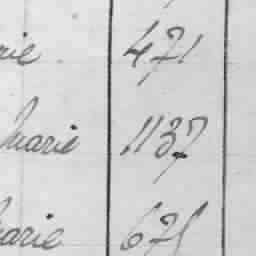 rie 471
Marie 1137
Marie 675